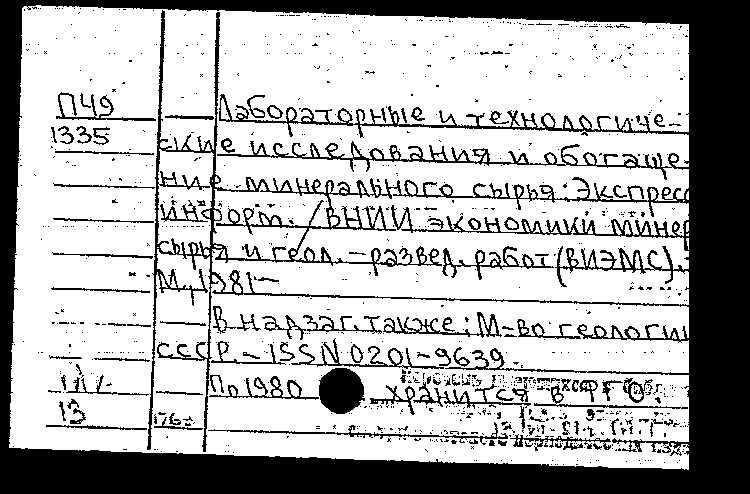 П49 Лабораторные и технологиче-
1335 ские исследования и обогаще-
ние минерального сырья: Экспресс
информ. / ВНИИ экономики минер
сырья и геол.-развед. работ (ВИЭМС). -
М., 1981-
В надзаг. также: М-во геологии
СССР. - ISSN 0201-9639.
По 1980 хранится в
13 176